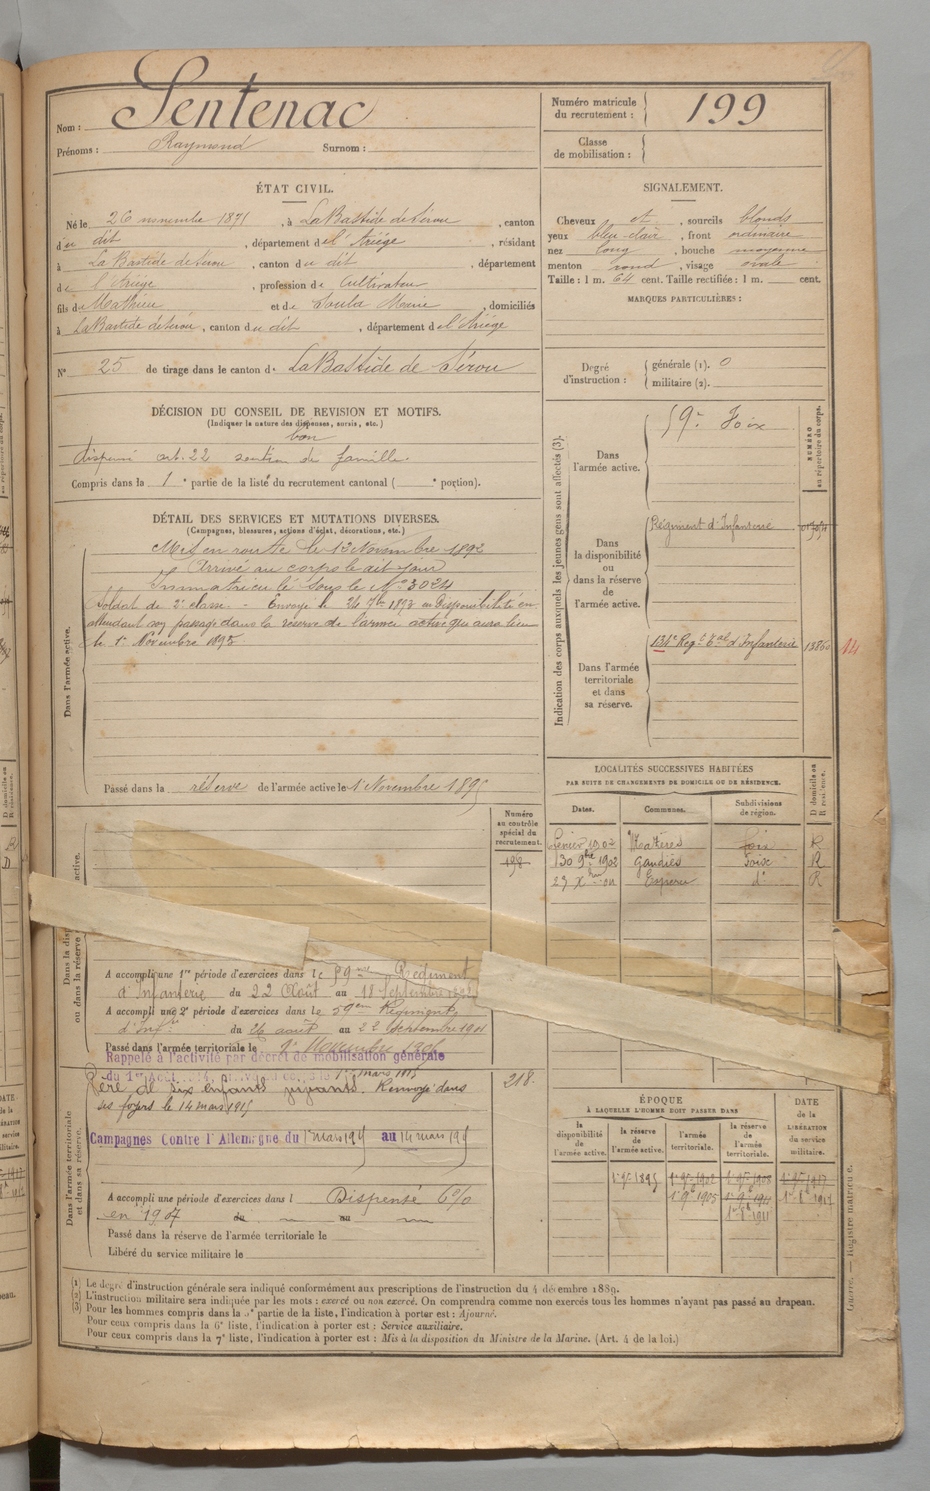 Nom : Sentenac
Prénoms : Raymond Surnom :
Numéro matricule du recrutement : 199
Classe de mobilisation :
ÉTAT CIVIL.
Né le 26 novembre 1871, à La Bastide de Sérou, canton
du dit, département de l'Ariège, résidant
à La Bastide de Sérou, canton du dit, département
de l'Ariège, profession de Cultivateur
fils de Mathieu et de Soula Marie, domiciliés
à La Bastide de Sérou, canton du dit, département de l'Ariège
N° 25 de tirage dans le canton de La Bastide de Sérou
SIGNALEMENT.
Cheveux et, sourcils blonds
yeux bleu clair, front ordinaire
nez long, bouche moyenne
menton rond, visage ovale
Taille : 1 m. 64 cent. Taille rectifiée : 1 m. cent.
MARQUES PARTICULIÈRES :
Degré d'instruction :
générale (1). 0
militaire (2).
DÉCISION DU CONSEIL DE REVISION ET MOTIFS.
(Indiquer la nature des dispenses, sursis, etc.)
bon
dispensé art. 22 soutien de famille.
Compris dans la 1e partie de la liste du recrutement cantonal ( e portion).
DÉTAIL DES SERVICES ET MUTATIONS DIVERSES.
(Campagnes, blessures, actions d'éclat, décorations, etc.)
Dans l'armée active.
Mis en route le 13 Novembre 1892
Arrivé au corps le dit jour
Immatriculé sous le N° 3024
Soldat de 2e classe. - Envoyé le 24 7bre 1893 en Disponibilité en
attendant son passage dans la réserve de l'armée active qui aura lieu
le 1er Novembre 1895
Passé dans la réserve de l'armée active le 1er Novembre 1895
Indication des corps auxquels les jeunes gens sont affectés (3).
NUMÉRO au répertoire du corps.
Dans l'armée active.
59e Foix
Dans la disponibilité ou dans la réserve de l'armée active.
Régiment d'Infanterie
Dans l'armée territoriale et dans sa réserve.
134e Regt Tal d'Infanterie
14
LOCALITÉS SUCCESSIVES HABITÉES
PAR SUITE DE CHANGEMENTS DE DOMICILE OU DE RÉSIDENCE.
Dates. Communes. Subdivisions de région. D domicile ou R résidence.
février 1902 Mazères foix R
30 9bre 1902 Gaudiès Foix R
d° R
Numéro au contrôle spécial du recrutement.
198
A accompli une 1re période d'exercices dans le 59me Régiment
d'Infanterie du 22 Août au 18 Septembre
A accompli une 2e période d'exercices dans le 59em Régiment
d'Inf.ie du 26 août au 22 Septembre 1901
Passé dans l'armée territoriale le 1er Novembre
Rappelé à l'activité par décret de mobilisation générale
du 1er Août 1er mars 1915
Père de six enfants vivants. Renvoyé dans
ses foyers le 14 mars 1915
218.
Campagnes Contre l'Allemagne du 1er mars 1915 au 14 mars 1915
Dans l'armée territoriale et dans sa réserve.
A accompli une période d'exercices dans l Dispensé 6%
en 1907 du au
Passé dans la réserve de l'armée territoriale le
Libéré du service militaire le
ÉPOQUE
À LAQUELLE L'HOMME DOIT PASSER DANS
la disponibilité de l'armée active. la réserve de l'armée active. l'armée territoriale. la réserve de l'armée territoriale.
DATE de la LIBÉRATION du service militaire.
1er 9bre 1895 1er 9bre 1902 1er 9bre 1908 1er 9bre 1917
1er 9bre 1905 1er 9bre 1911 1er 8bre 1917
1er 8bre 1911
(1) Le degré d'instruction générale sera indiqué conformément aux prescriptions de l'instruction du 4 décembre 1889.
(2) L'instruction militaire sera indiquée par les mots : exercé ou non exercé. On comprendra comme non exercés tous les hommes n'ayant pas passé au drapeau.
(3) Pour les hommes compris dans la 5e partie de la liste, l'indication à porter est : Ajourné.
Pour ceux compris dans la 6e liste, l'indication à porter est : Service auxiliaire.
Pour ceux compris dans la 7e liste, l'indication à porter est : Mis à la disposition du Ministre de la Marine. (Art. 4 de la loi.)
Guerre. — Registre matricule.